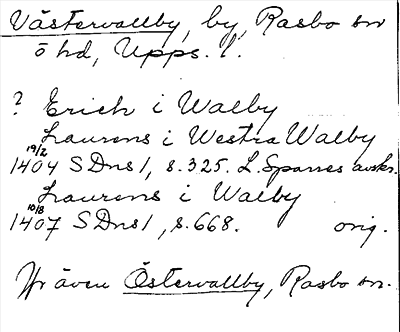 Västervallby, by, Rasbo sn
ö hd, Upps. l.
? Erich i Walby
Laurens i Westra Walby
19/2
1404 SDns 1, s. 325. L. Sparres avskr.
Laurens i Walby
10/8
1407 SDns 1, s. 668. orig.
Jfr även Östervallby, Rasbo sn.